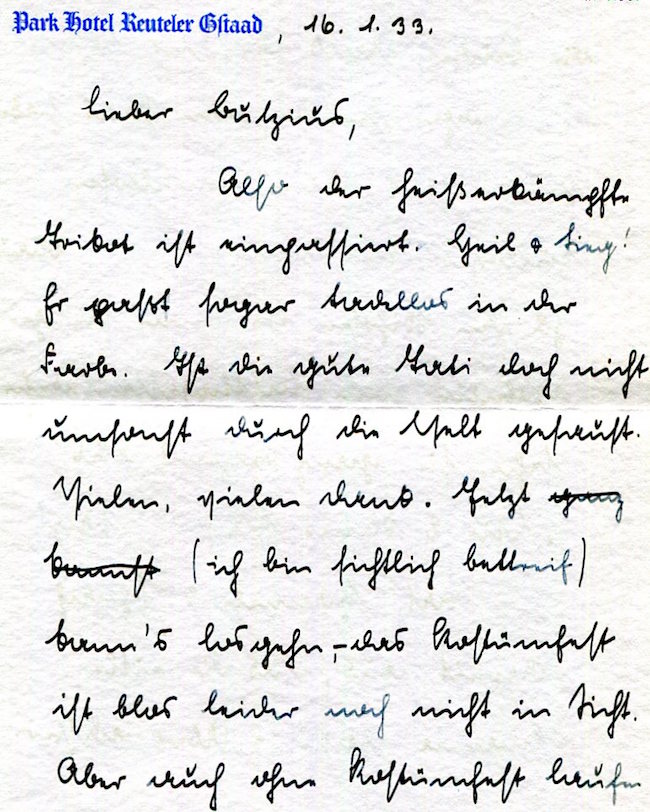 Park Hotel Reuteler Gstaad, 16. 1. 33.
Lieber Butzius,
Also der heißerkämpfte
Trikot ist einpassiert. Heil & Sieg!
Er paßt sogar tadellos in der
Farbe. Ist die gute Tati doch nicht
umsonst durch die Welt gesaust.
Vielen, vielen Dank. Jetzt ganz
kannst (ich bin sichtlich bettreif)
kann's losgehn, – das Kostümfest
ist blos leider noch nicht in Sicht.
Aber auch ohne Kostümfest laufen